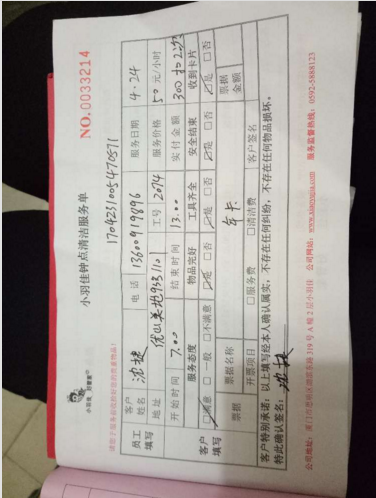 小羽佳钟点清洁服务单
NO.0033214
小羽佳 好管家
1704231005470571
员工填写 客户姓名 沈越 电话 13600919896 服务日期 4.24
地址 优山美地953110 工号 2074 服务价格 50 元/小时
开始时间 7.00 结束时间 13.00 实付金额 300
客户填写 服务态度 物品完好 工具齐全 安全结束 收到卡片
满意 一般 不满意 是 否 是 否 是 否
票据 票据名称 年卡 票据金额
开票项目 服务费 清洁费 客户签名
客户特别承诺：以上填写经本人确认属实，不存在任何纠纷，不存在任何物品损坏。
特此确认签名：
公司网站：www.xiaoyujia.com 服务监督热线：0592-5888123